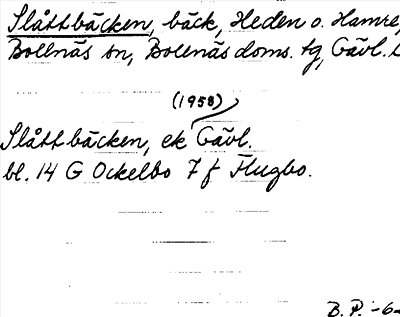 Slåttbäcken, bäck, Heden o. Hamre,
Bollnäs sn, Bollnäs doms. tg, Gävl. l
(1958)
Slåttbäcken, ek Gävl.
bl. 14 G Ockelbo 7 f Flugbo.
B. P. -6